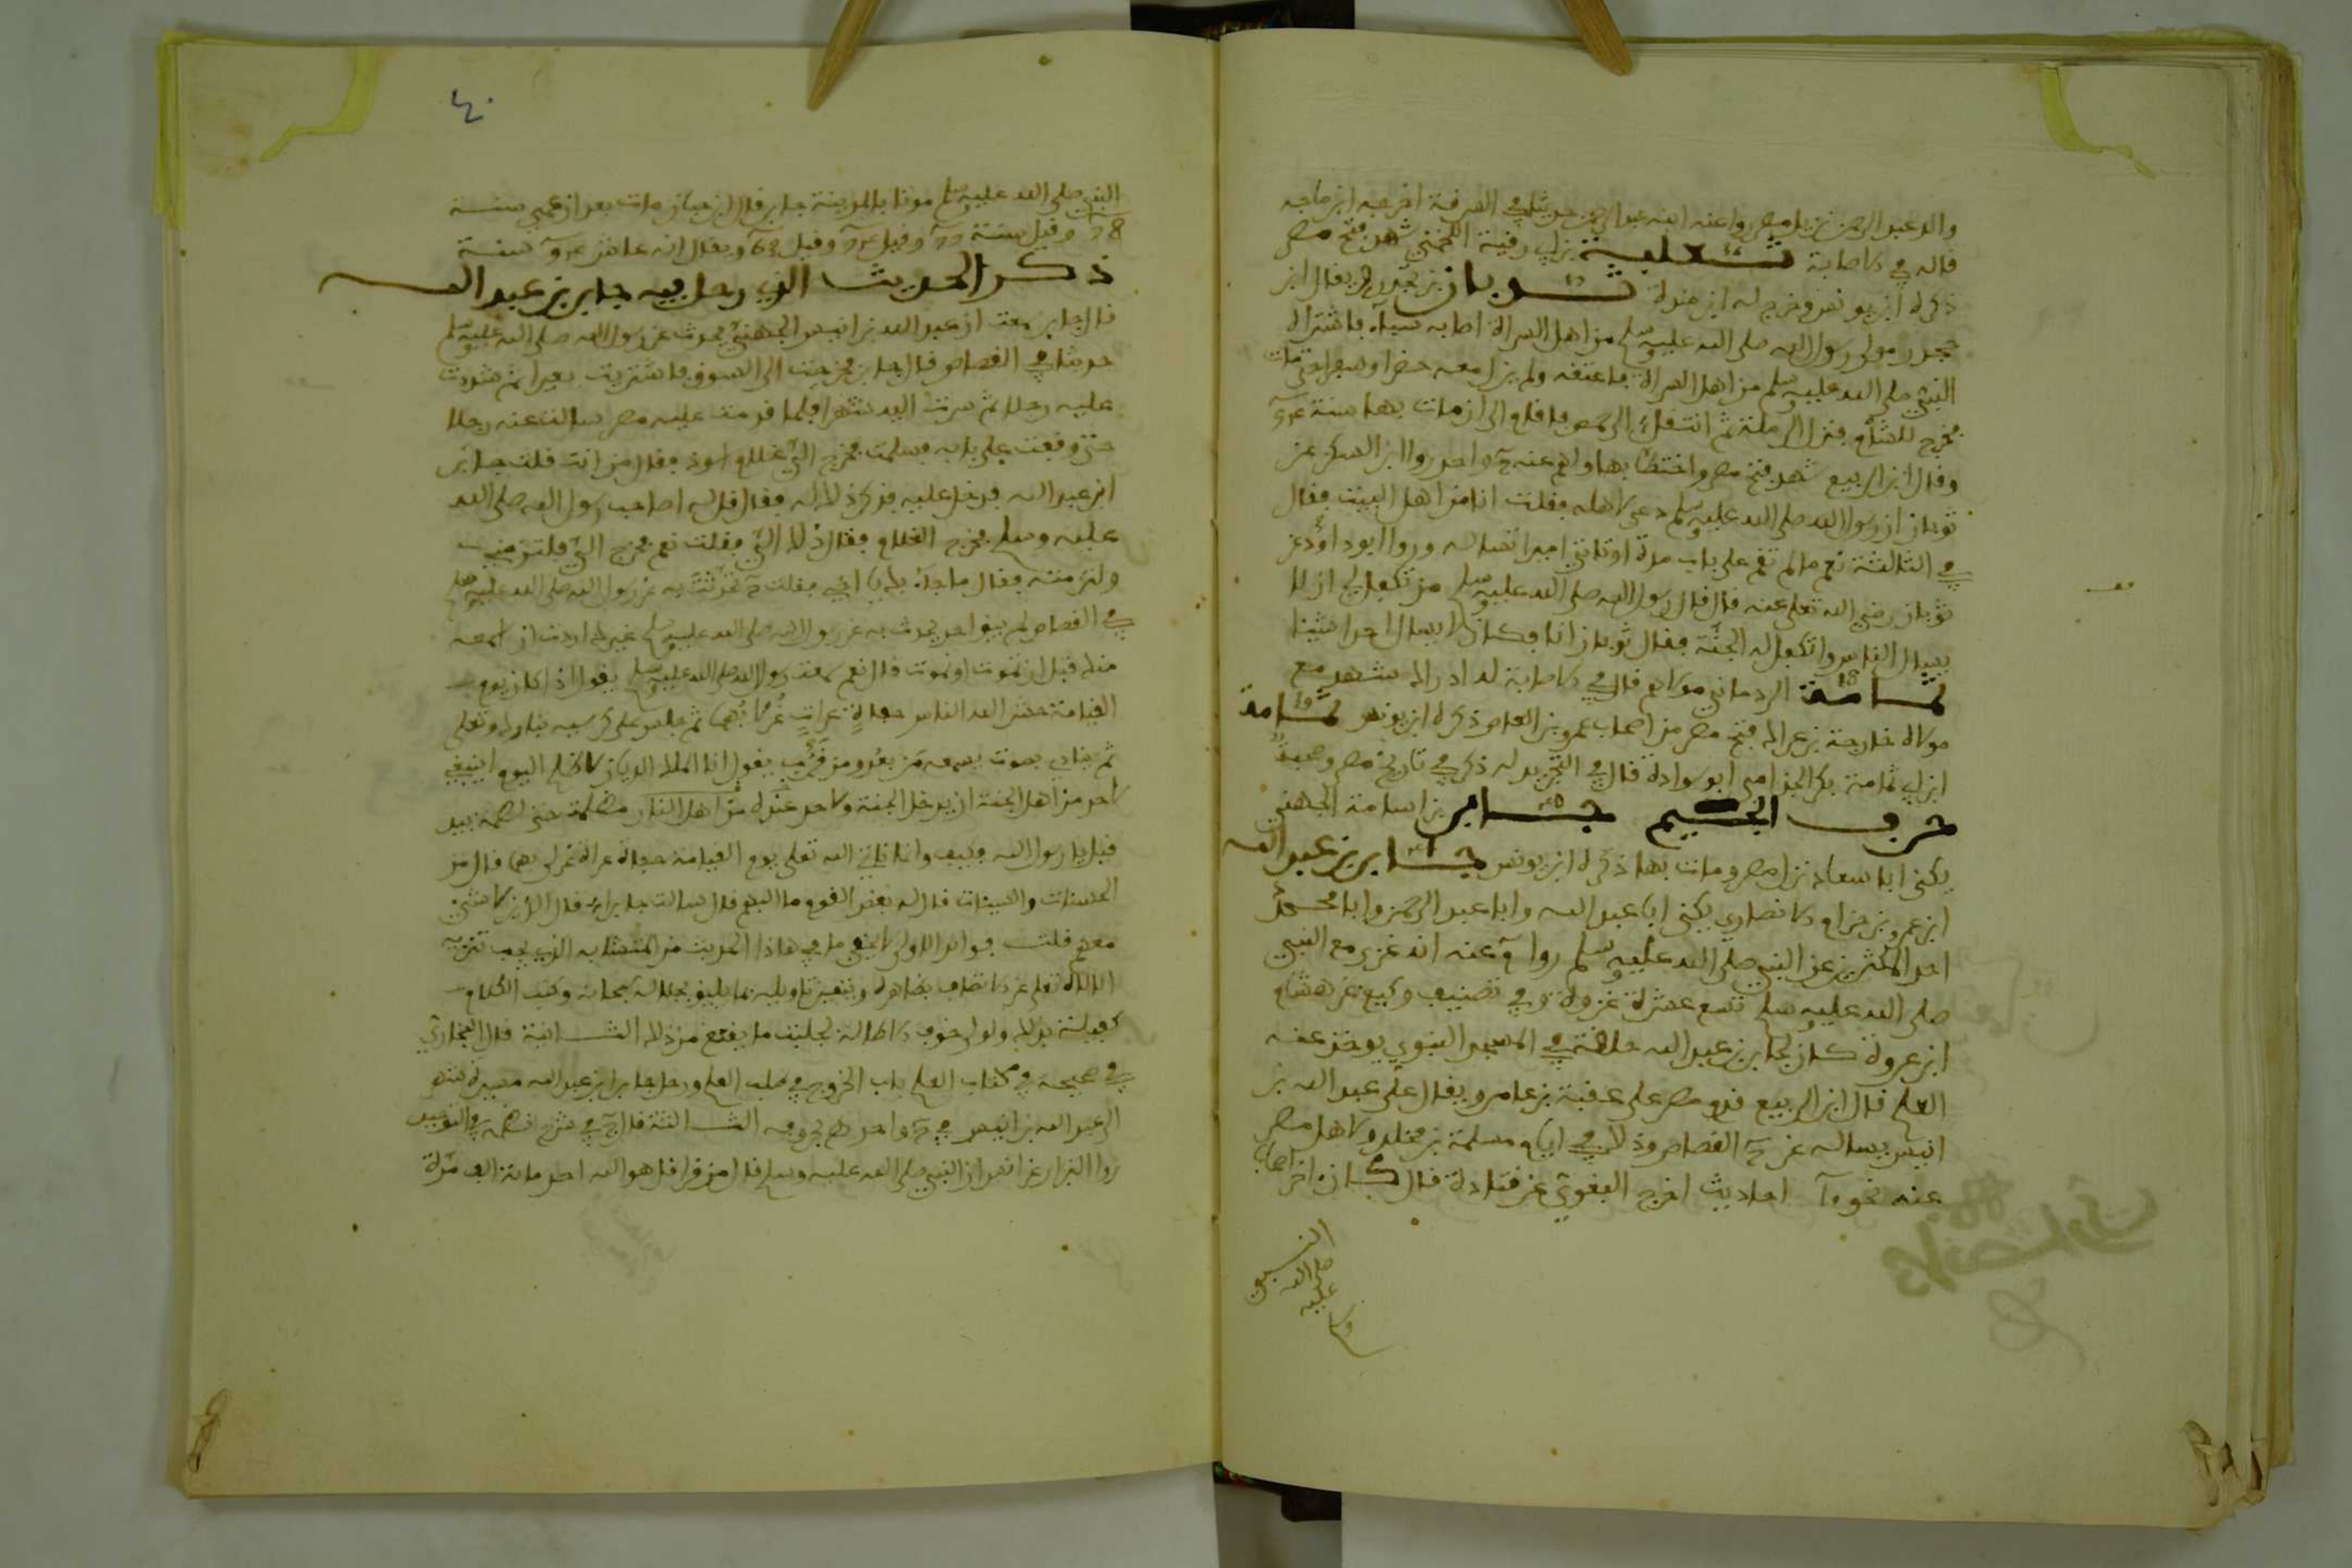 والد عبد الرحمن نزيل مصر روا عنه ابنه عبد الرحمن حديثا في السرقة اخرجه ابن ماجه
قاله في الاصابة ثعلبة بن ابي رقية اللخمي شهد فتح مصر
ذكره ابن يونس وخرج له ابن مندة ثوبان بن بجدد ويقال ابن
جحدر مولى رسول الله صلى الله عليه وسلم من اهل السراة اصابه سباء فاشتراه
النبي صلى الله عليه وسلم من اهل السراة فاعتقه ولم يزل معه حضرا وسفرا حتى مات
فخرج للشام فنزل الرملة ثم انتقل الى حمص فاقام الى ان مات بها سنة
وقال ابن الربيع شهد فتح مصر واختط بها ولهم عنه ح واحد روا ابن السكن عن
ثوبان ان رسول الله صلى الله عليه وسلم دعى لاهله فقلت انا من اهل البيت فقال
في الثالثة نعم ما لم تقم على باب سدة او تاتي اميرا تساله وروا ابو داود عن
ثوبان رضي الله تعلى عنه قال قال رسول الله صلى الله عليه وسلم من تكفل لي ان لا
يسال الناس واتكفل له الجنة فقال ثوبان انا فكان لا يسال احدا شيئا
ثمامة الردماني مولاهم قال في الاصابة له ادراك شهد مع
مولاه خارجة بن عراك فتح مصر من اصحاب عمرو بن العاص ذكره ابن يونس ثمامة
ابن ابي ثمامة بكر الجذامي ابو سوادة قال في التجريد له ذكر في تاريخ مصر وصحبة
حرف الجيم جابر بن اسامة الجهني
يكنى ابا سعاد نزل مصر ومات بها ذكره ابن يونس جابر بن عبد الله
ابن عمرو بن حرام الانصاري يكنى ابا عبد الله وابا عبد الرحمن وابا محمد
احد المكثرين عن النبي صلى الله عليه وسلم روا عنه انه غزى مع النبي
صلى الله عليه وسلم تسع عشرة غزوة وفي تصنيف وكيع عن هشام
ابن عروة كان لجابر بن عبد الله حلقة في المسجد النبوي يوخذ عنه
العلم قال ابن الربيع قدم مصر على عقبة بن عامر ويقال على عبد الله بن
انيس يساله عن ح القصاص وذلك في ايام مسلمة بن مخلد ولاهل مصر
عنه نحو احاديث اخرج البغوي عن قتادة قال كان اخر اصحاب
النبي
صلى الله
عليه
وسلم
النبي صلى الله عليه وسلم موتا بالمدينة جابر قال ابن حبان مات بعد ان عمي سنة
78 وقيل سنة وقيل وقيل ويقال انه عاش سنة
ذكر الحديث الذي رحل فيه جابر بن عبد الله
قال جابر سمعت ان عبد الله بن انيس الجهني يحدث عن رسول الله صلى الله عليه وسلم
حديثا في القصاص قال جابر فخرجت الى السوق فاشتريت بعيرا ثم شددت
عليه رحلا ثم سرت اليه شهرا فلما قدمت عليه مصر سالت عنه رجلا
حتى وقفت على بابه فسلمت فخرج الي غلام اسود فقال من انت قلت جابر
ابن عبد الله فدخل عليه فذكر ذلك له فقال قل له اصاحب رسول الله صلى الله
عليه وسلم فخرج الغلام فقال ذلك الي فقلت نعم فخرج الي فالتزمني
ولتزمته فقال ما جاء بك يا اخي فقلت ح تحدثت به عن رسول الله صلى الله عليه وسلم
في القصاص لم يبق احد يحدث به عن رسول الله صلى الله عليه وسلم غيرك اردت ان اسمعه
منك قبل ان تموت او نموت قال نعم سمعت رسول الله صلى الله عليه وسلم يقول اذا كان يوم
القيامة حشر الله الناس حفاة عراة غرلا بهما ثم جلس على كرسيه تبارك وتعلى
ثم ينادي بصوت يسمعه من بعد ومن قرب يقول انا الملك الديان لا ظلم اليوم لا ينبغي
لاحد من اهل الجنة ان يدخل الجنة ولاحد عنده من اهل النار مظلمة حتى لطمة بيد
قيل يا رسول الله وكيف وانا ناتي الله تعلى يوم القيامة حفاة عراة غرلا بهما قال من
الحسنات والسيئات قال له بعض القوم ما البهم قال سالت جابرا قال الذين لا شيء
معهم قلت فوائد الاولى لا يخفى ما في هاذا الحديث من المتشابه الذي يجب تنزيه
الالاه تعلى عن الاتصاف بظاهره ويتعين تاويله بما يليق بجلاله سبحانه وكتب الكلام
كفيلة بذلك ولولا خوف الاطالة لجلبت ما يقنع من ذلك الثانية قال البخاري
في صحيحه في كتاب العلم باب الخروج في طلب العلم ورحل جابر ابن عبد الله مسيرة شهر
الى عبد الله بن انيس في ح واحد هم بحروفه الثالثة قال ح في شرح نظمه في التوحيد
روا البزار عن انس ان النبي صلى الله عليه وسلم قال من قرا قل هو الله احد مائة الف مرة